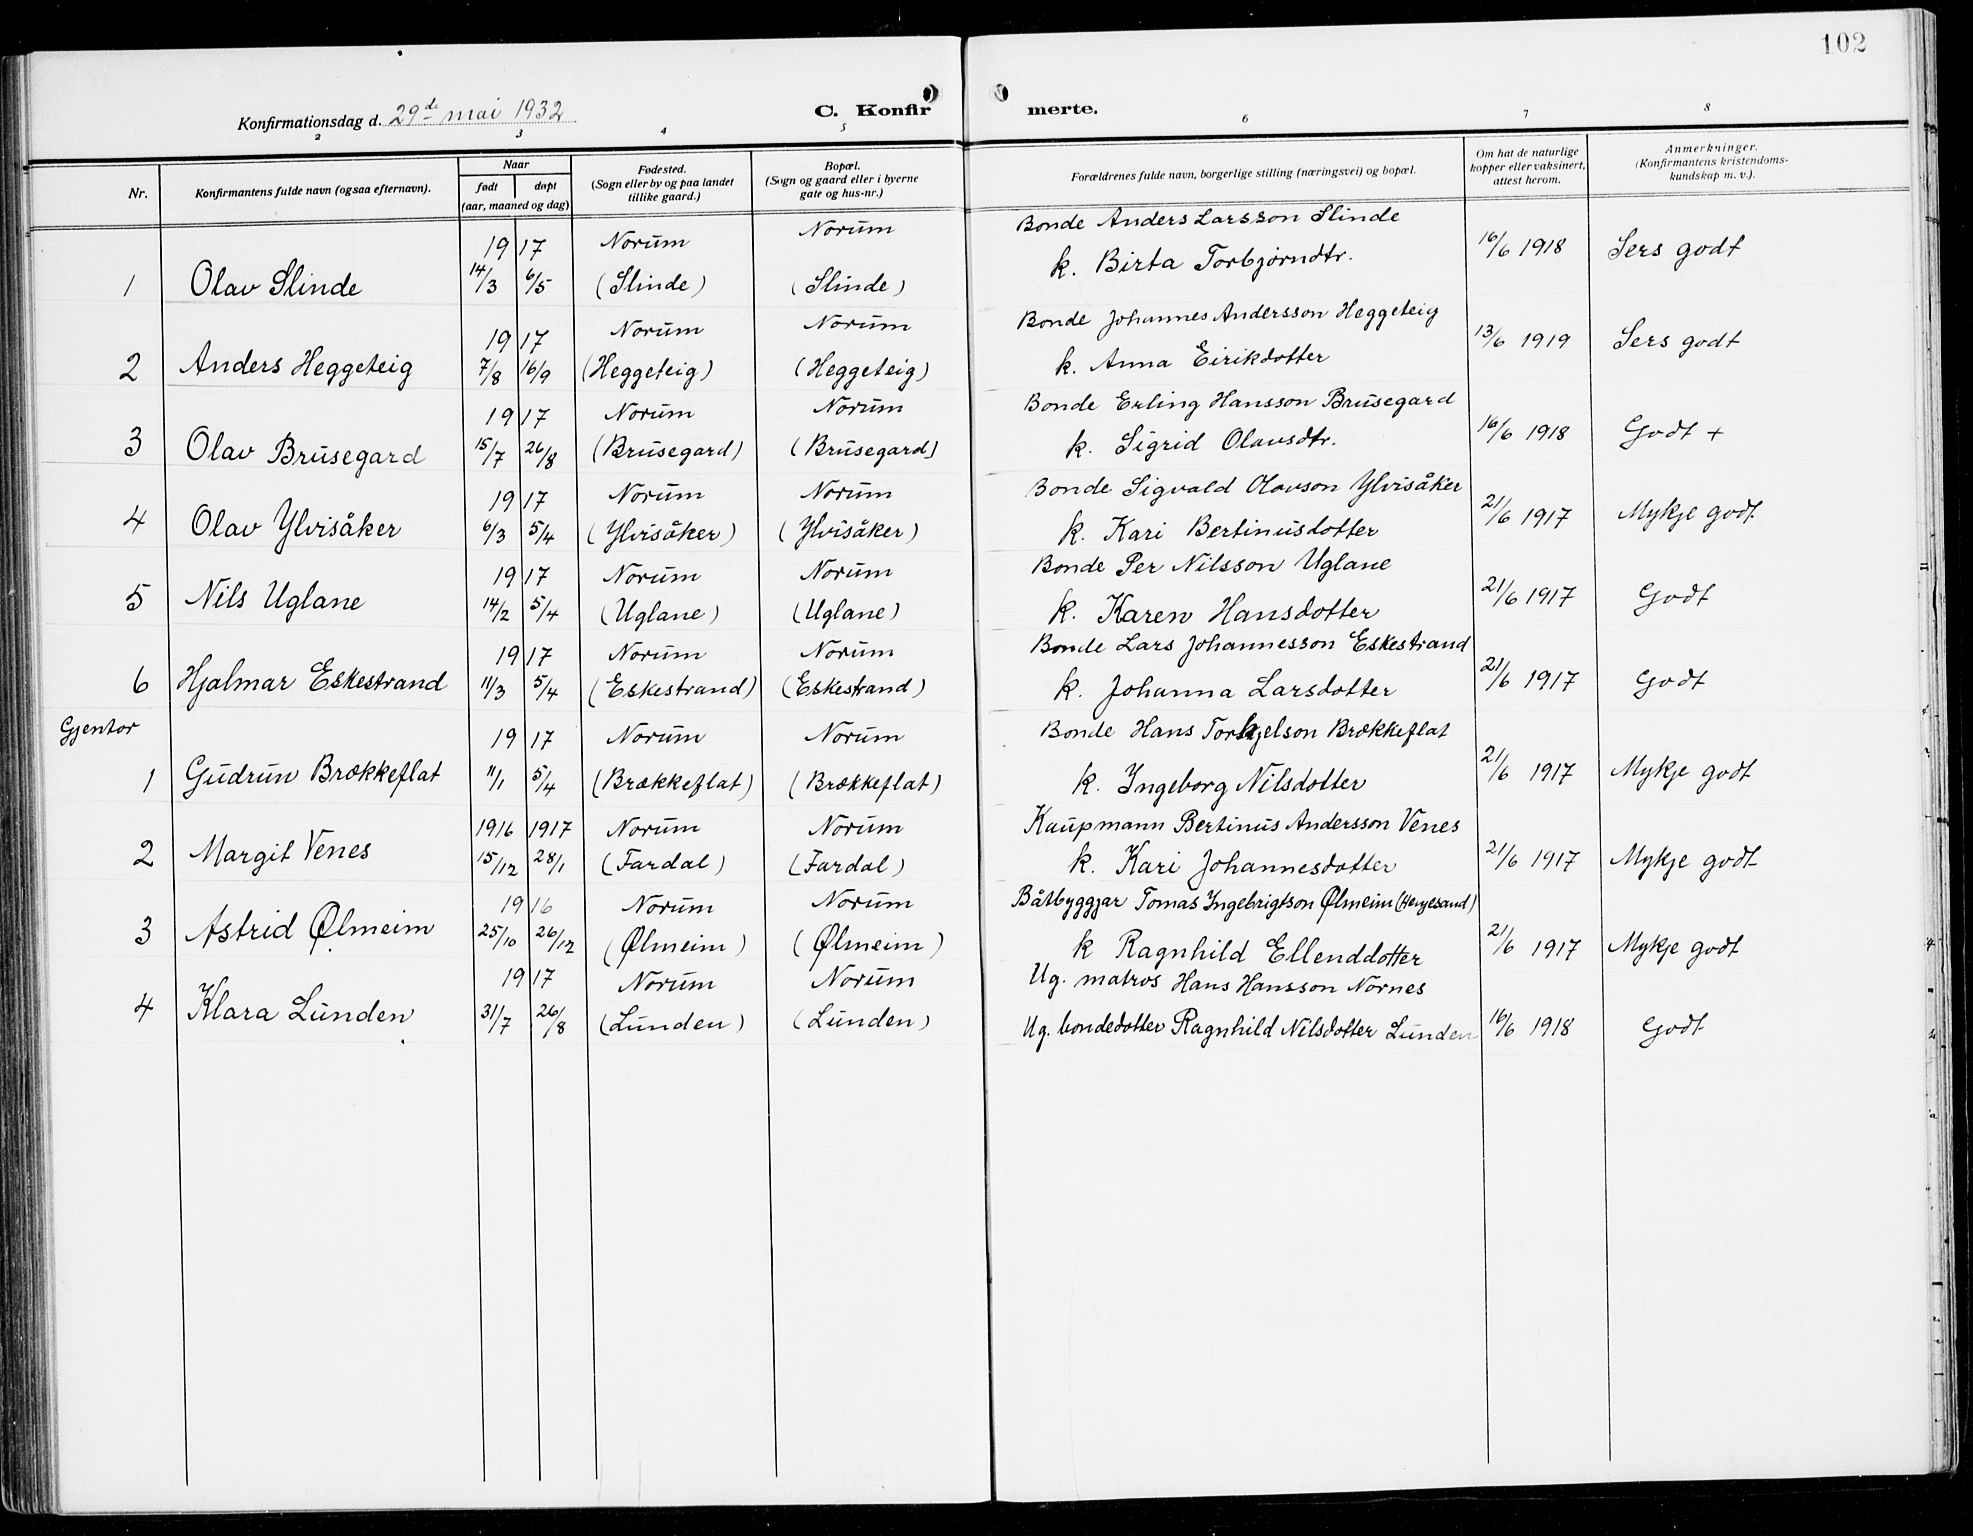 102
Konfirmationsdag d. 29de mai 1932
C. Konfirmerte.
2 3 4 5 6 7 8
Nr. Konfirmantens fulde navn (ogsaa efternavn). Naar født døpt (aar, maaned og dag) Fødested. (Sogn eller by og paa landet tillike gaard.) Bopæl. (Sogn og gaard eller i byerne gate og hus-nr.) Forældrenes fulde navn, borgerlige stilling (næringsvei) og bopæl. Om hat de naturlige kopper eller vaksinert, attest herom. Anmerkninger. (Konfirmantens kristendomskundskap m. v.).
19 17 Norum Norum Bonde Anders Larsson Slinde
1 Olav Slinde 14/3 6/5 (Slinde) (Slinde) k. Birta Torbjørndtr. 16/6 1918 Sers godt
19 17 Norum Norum Bonde Johannes Andersson Heggeteig
2 Anders Heggeteig 7/8 16/9 (Heggeteig) (Heggeteig) k. Anna Eirikdotter 13/6 1919 Sers godt
19 17 Norum Norum Bonde Erling Hansson Brusegard
3 Olav Brusegard 15/7 26/8 (Brusegard) (Brusegard) k. Sigrid Olavsdtr. 16/6 1918 Godt +
19 17 Norum Norum Bonde Sigvald Olavson Ylvisåker
4 Olav Ylvisåker 6/3 5/4 (Ylvisåker) (Ylvisåker) k. Kari Bertinusdotter 21/6 1917 Mykje godt
19 17 Norum Norum Bonde Per Nilsson Uglane
5 Nils Uglane 14/2 5/4 (Uglane) (Uglane) k. Karen Hansdotter 21/6 1917 Godt
19 17 Norum Norum Bonde Lars Johannesson Eskestrand
6 Hjalmar Eskestrand 11/3 5/4 (Eskestrand) (Eskestrand) k. Johanna Larsdotter 21/6 1917 Godt
Gjentor
19 17 Norum Norum Bonde Hans Torkjelson Brækkeflat
1 Gudrun Brækkeflat 11/1 5/4 (Brækkeflat) (Brækkeflat) k. Ingeborg Nilsdotter 21/6 1917 Mykje godt
1916 1917 Norum Norum Kaupmann Bertinus Andersson Venes
2 Margit Venes 15/12 28/1 (Fardal) (Fardal) k. Kari Johannesdotter 21/6 1917 Mykje godt
19 16 Norum Norum Båtbyggjar Tomas Ingebrigtson Ølmeim (Henjesand)
3 Astrid Ølmeim 25/10 26/12 (Ølmeim) (Ølmeim) k Ragnhild Ellenddotter 21/6 1917 Mykje godt
19 17 Norum Norum Ug. matros Hans Hansson Nornes
4 Klara Lunden 31/7 26/8 (Lunden) (Lunden) Ug. bondedotter Ragnhild Nilsdotter Lunden 16/6 1918 Godt